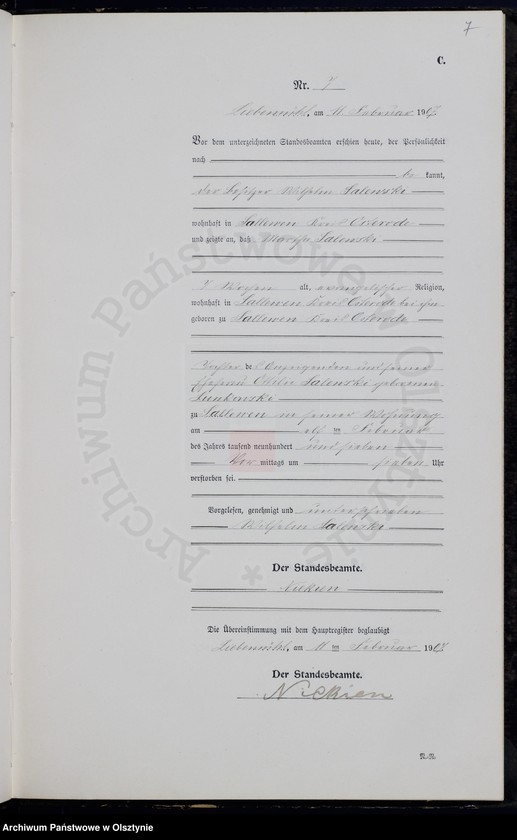 7
C.
Nr. 7
am 11 Februar 1907.
Vor dem unterzeichneten Standesbeamten erschien heute, der Persönlichkeit
nach
be kannt,
der Besitzer Wilhelm Salewski
wohnhaft in Sallewen Kreis Osterode
und zeigte an, daß Martha Salewski
7 Wochen alt, evangelischer Religion,
wohnhaft in Sallewen Kreis Osterode bei ihm
geboren zu Sallewen Kreis Osterode
Tochter des Anzeigenden und seiner
Ehefrau Ottilie Salewski geborenen
zu Sallewen in seiner Wohnung
am elf ten Februar
des Jahres tausend neunhundert und sieben
Vor mittags um sieben Uhr
verstorben sei.
Vorgelesen, genehmigt und unterschrieben
Wilhelm Salewski
Der Standesbeamte.
Nickien
Die Übereinstimmung mit dem Hauptregister beglaubigt
am 11 ten Februar 1907.
Der Standesbeamte.
Nickien
N.-N.
Archiwum Państwowe w Olsztynie
Archiwum Państwowe w Olsztynie